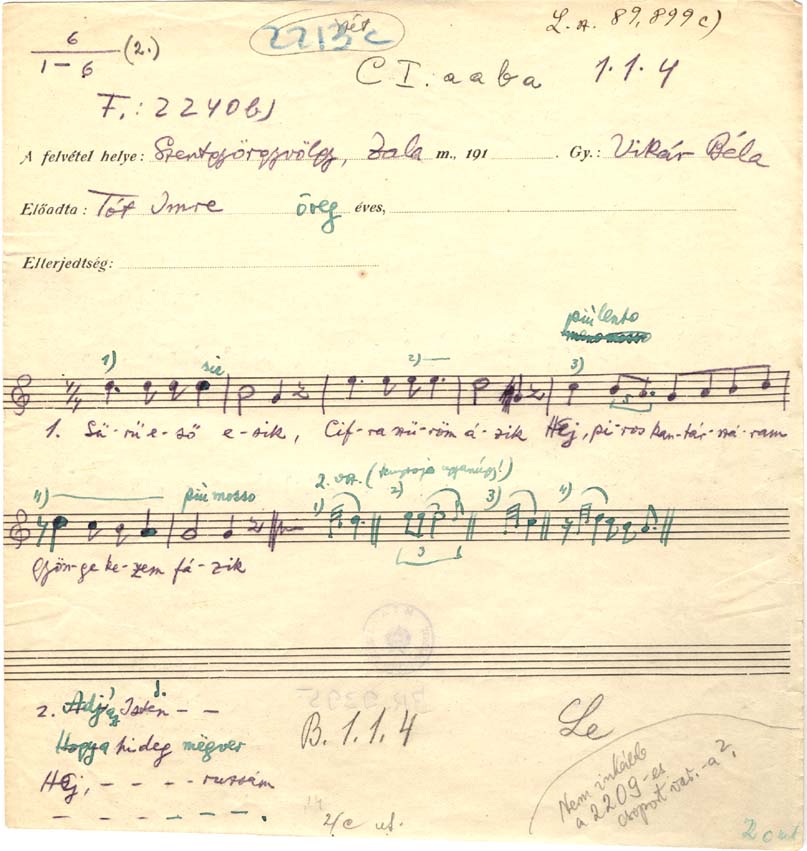 6
1–6 (2.)
2213c
L. sz. 89,899c)
C I. aaba 1.1.4
F.: 2240b)
A felvétel helye: Szentgyörgyvölgy, Zala m., 191 . Gy.: Vikár Béla
Előadta: Tót Imre öreg éves,
Elterjedtség:
più lento
1) sic 2) 3)
1. Sű-rű e-ső e-sik, Cif-ra szű-röm á-zik Hej, pi-ros kan-tár-szá-ram
4) più mosso 2. vsz. 1) 2) 3) 4)
3
Gyön-ge ke-zem fá-zik
2. Adj az Isten – –
Hogy a hideg megver
Hej, – – – – russám
– – – – – – .
B. 1.1.4
Le
Nem inkább
a 2209-es
csoport var.-a?